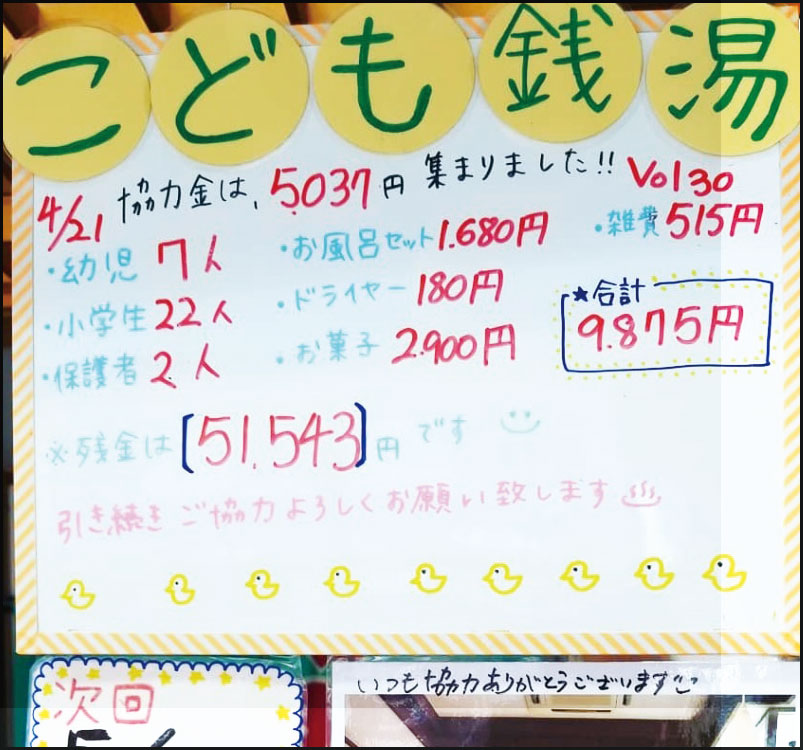 こども銭湯
4/21 協力金は、5037円 集まりました!! Vol 30
・幼児 7人 ・お風呂セット 1.680円 ・雑費 515円
・小学生 22人 ・ドライヤー 180円 ★合計
・保護者 2人 ・お菓子 2.900円 9.875円
※残金は [51.543] 円 です
引き続き ご協力よろしくお願い致します♨
次回
いつも協力ありがとうございます